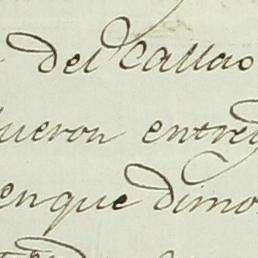 del Callao
fueron entreg
enque dimo